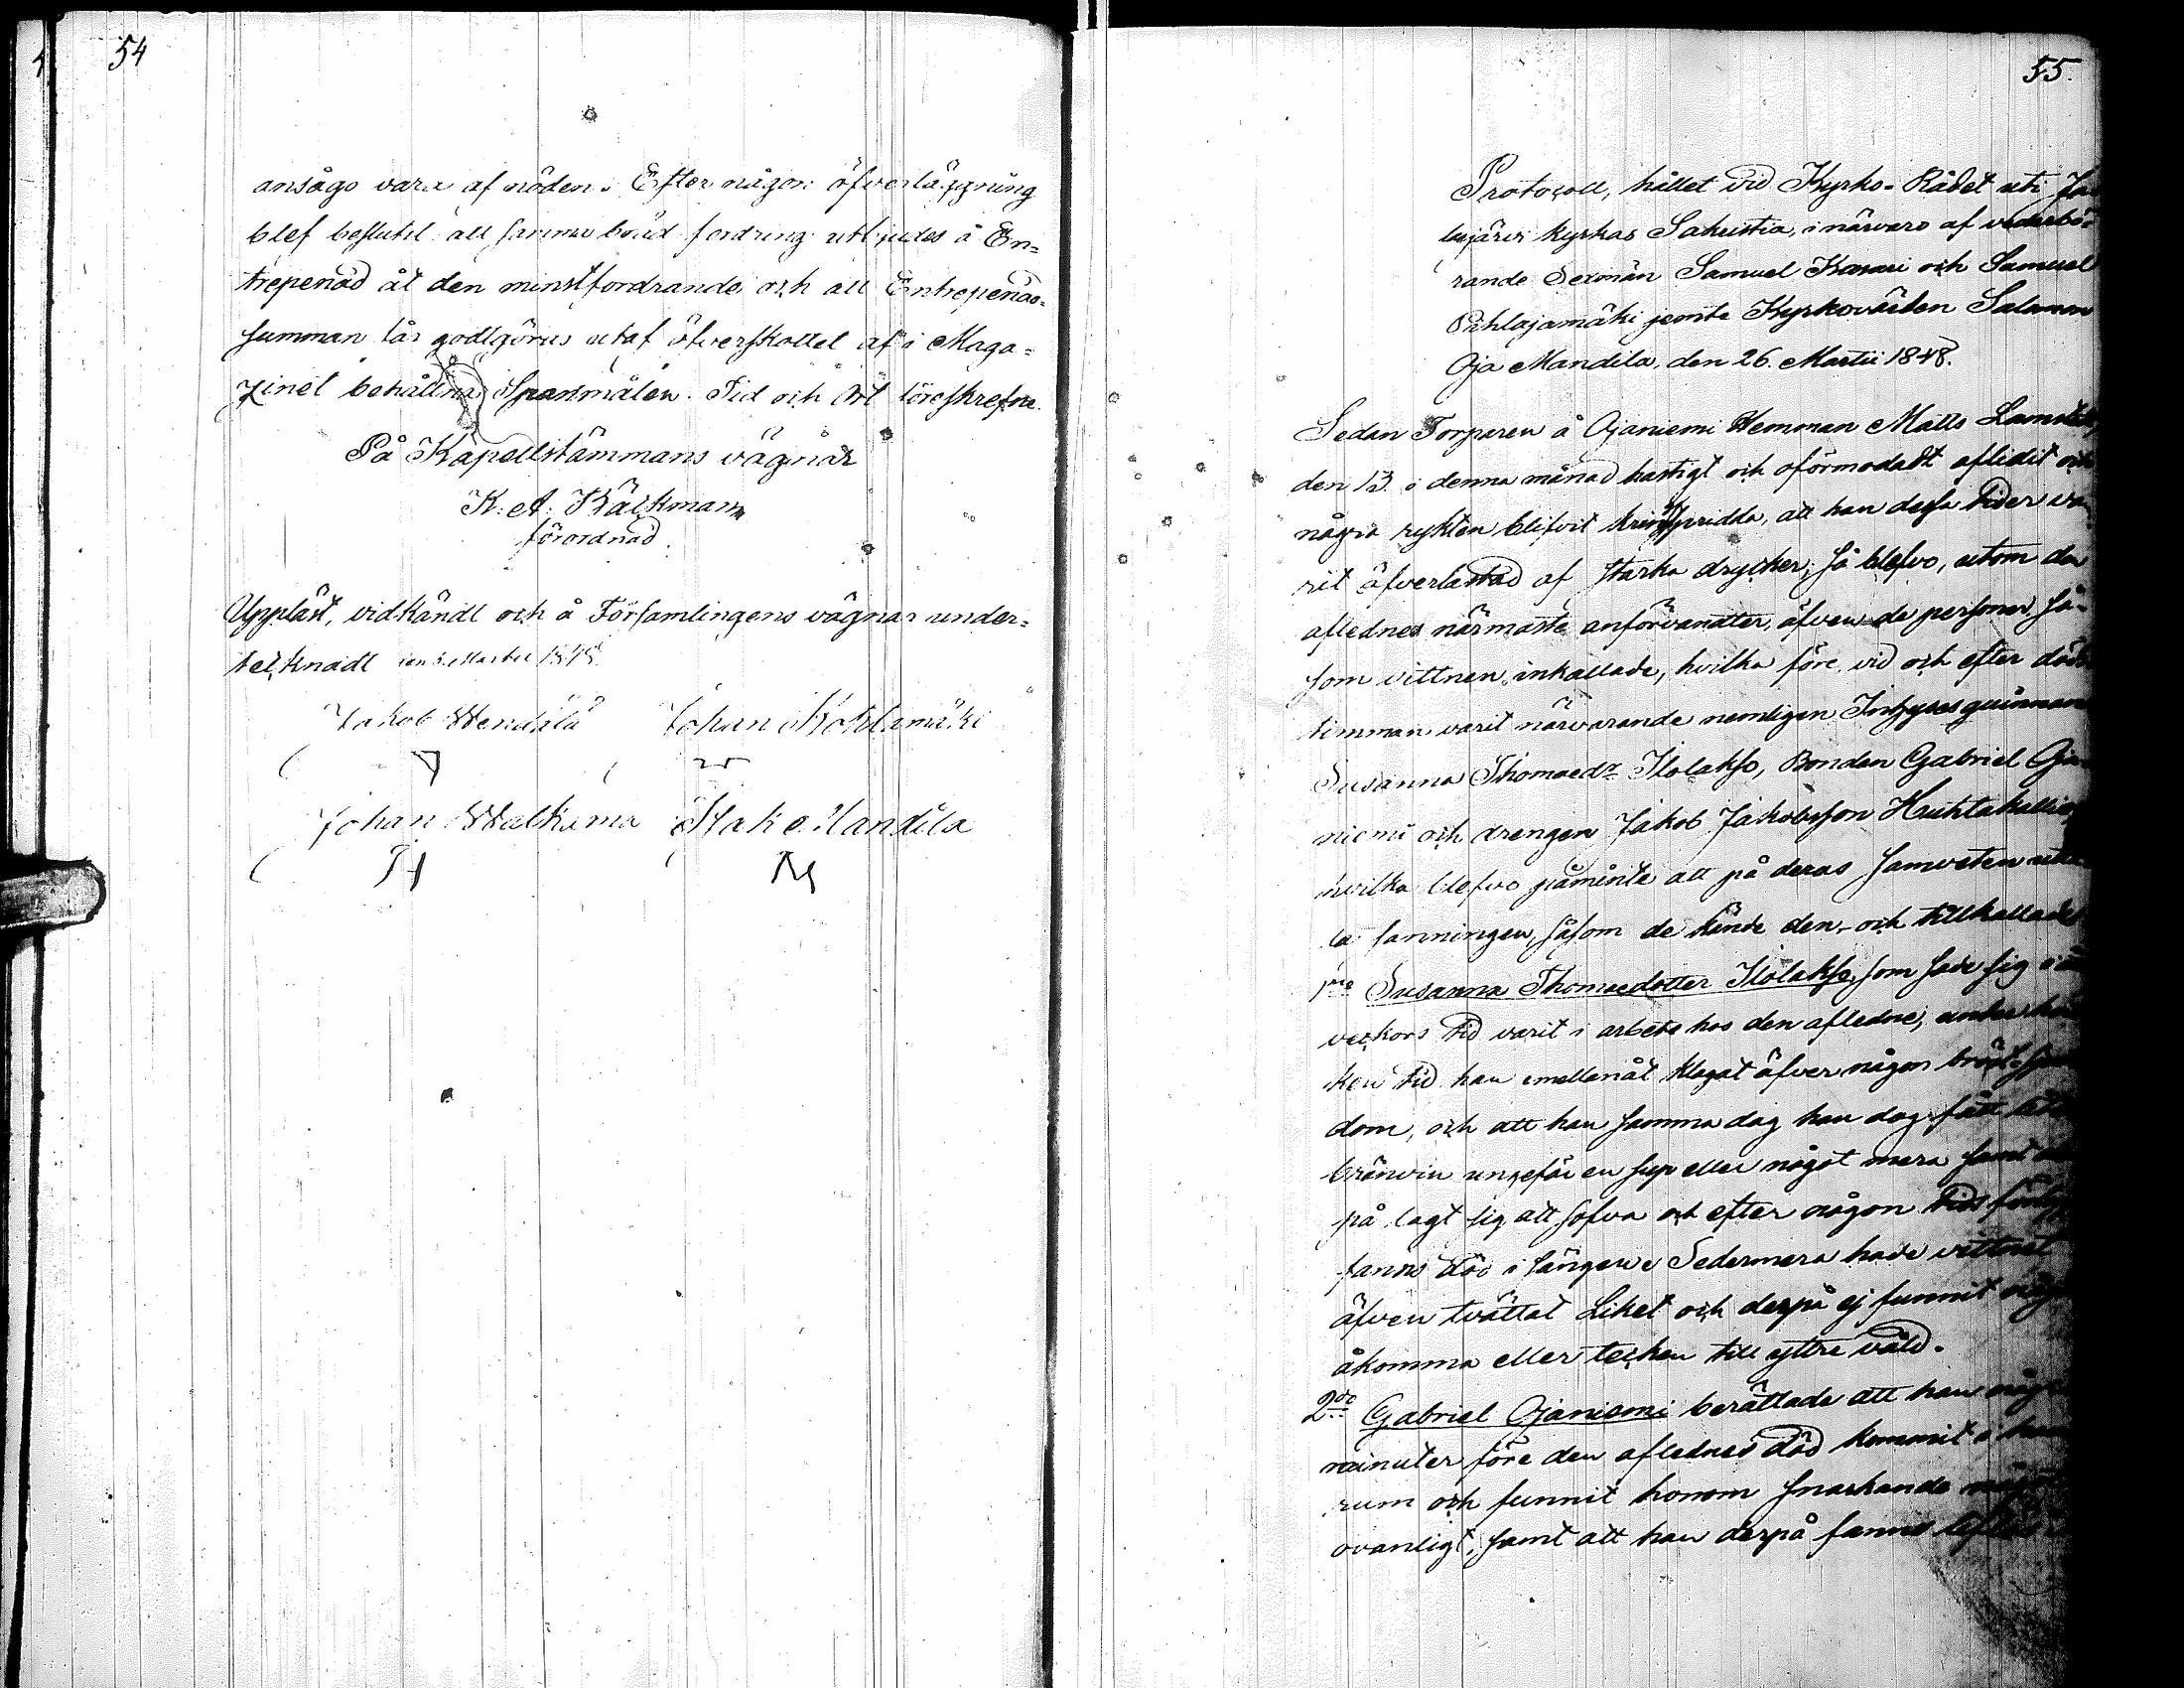 54
ansågo vara af nöden. Efter någon öfverläggning
blef beslutit att samma fordring utbjudes å En=
trepenad åt den minstfordrande och att Entrepenad=
summan får godtgöras utaf öfverskottet af i Maga=
zinet behållna Spanmålen. Tid och Ort föreskrefne.
På Kapellstämmans vägnar
K. A. Bäckman
förordnad.
Uppläst, vidkändt och å Församlingens vägnar under=
tecknadt den Martii 1848.
Jakob Johan
Johan Mandila
55.
Protocoll, hållet vid Kyrko-Rådet uti
kyrkas Sakristia, i närvaro af vederbö=
rande Sexmän Samuel Kasari och Samuel
Pihlajamäki jemte Kyrkovärden Salamon
Oja Mandila, den 26. Martii 1848.
Sedan Torparen å Ojaniemi Hemman Matts
den 13. i denna månad hastigt och oförmodadt aflidit och
några rykten blifvit kringspridda, att han dessa tider va
rit öfverlastad af starka drycker, så blefvo, utom den
aflednes närmaste anförvanter, äfven de personer så=
som vittnen inkallade, hvilka före, vid och efter döds
timman varit närvarande nemligen Inhyses quinnan
Susanna Thomaedr Ilolakso, Bonden Gabriel Oja
niemi och drengen Jakob Jakobsson Huhtakallio
hvilka blefvo påminte att på deras samveten utta
la sanningen, såsom de kände den, och tillkallades
1mo Susanna Thomaedotter Ilolakso, som sade sig
veckors tid varit i arbete hos den afledne, under hvil
ken tid han emellanåt klagat öfver någon bröstsjuk
dom, och att han samma dag han dog fått
brännvin ungefär en sup eller något mera samt
på lagt sig att sofva och efter någon tids
fanns död i sängen. Sedermera hade vittnet
äfven tvättat Liket och derpå ej funnit någon
åkomma eller tecken till yttre våld.
2do Gabriel Ojaniemi berättade att han några
minuter före den aflednes död kommit i
rum och funnit honom snarkande
ovanligt, samt att han derpå fanns